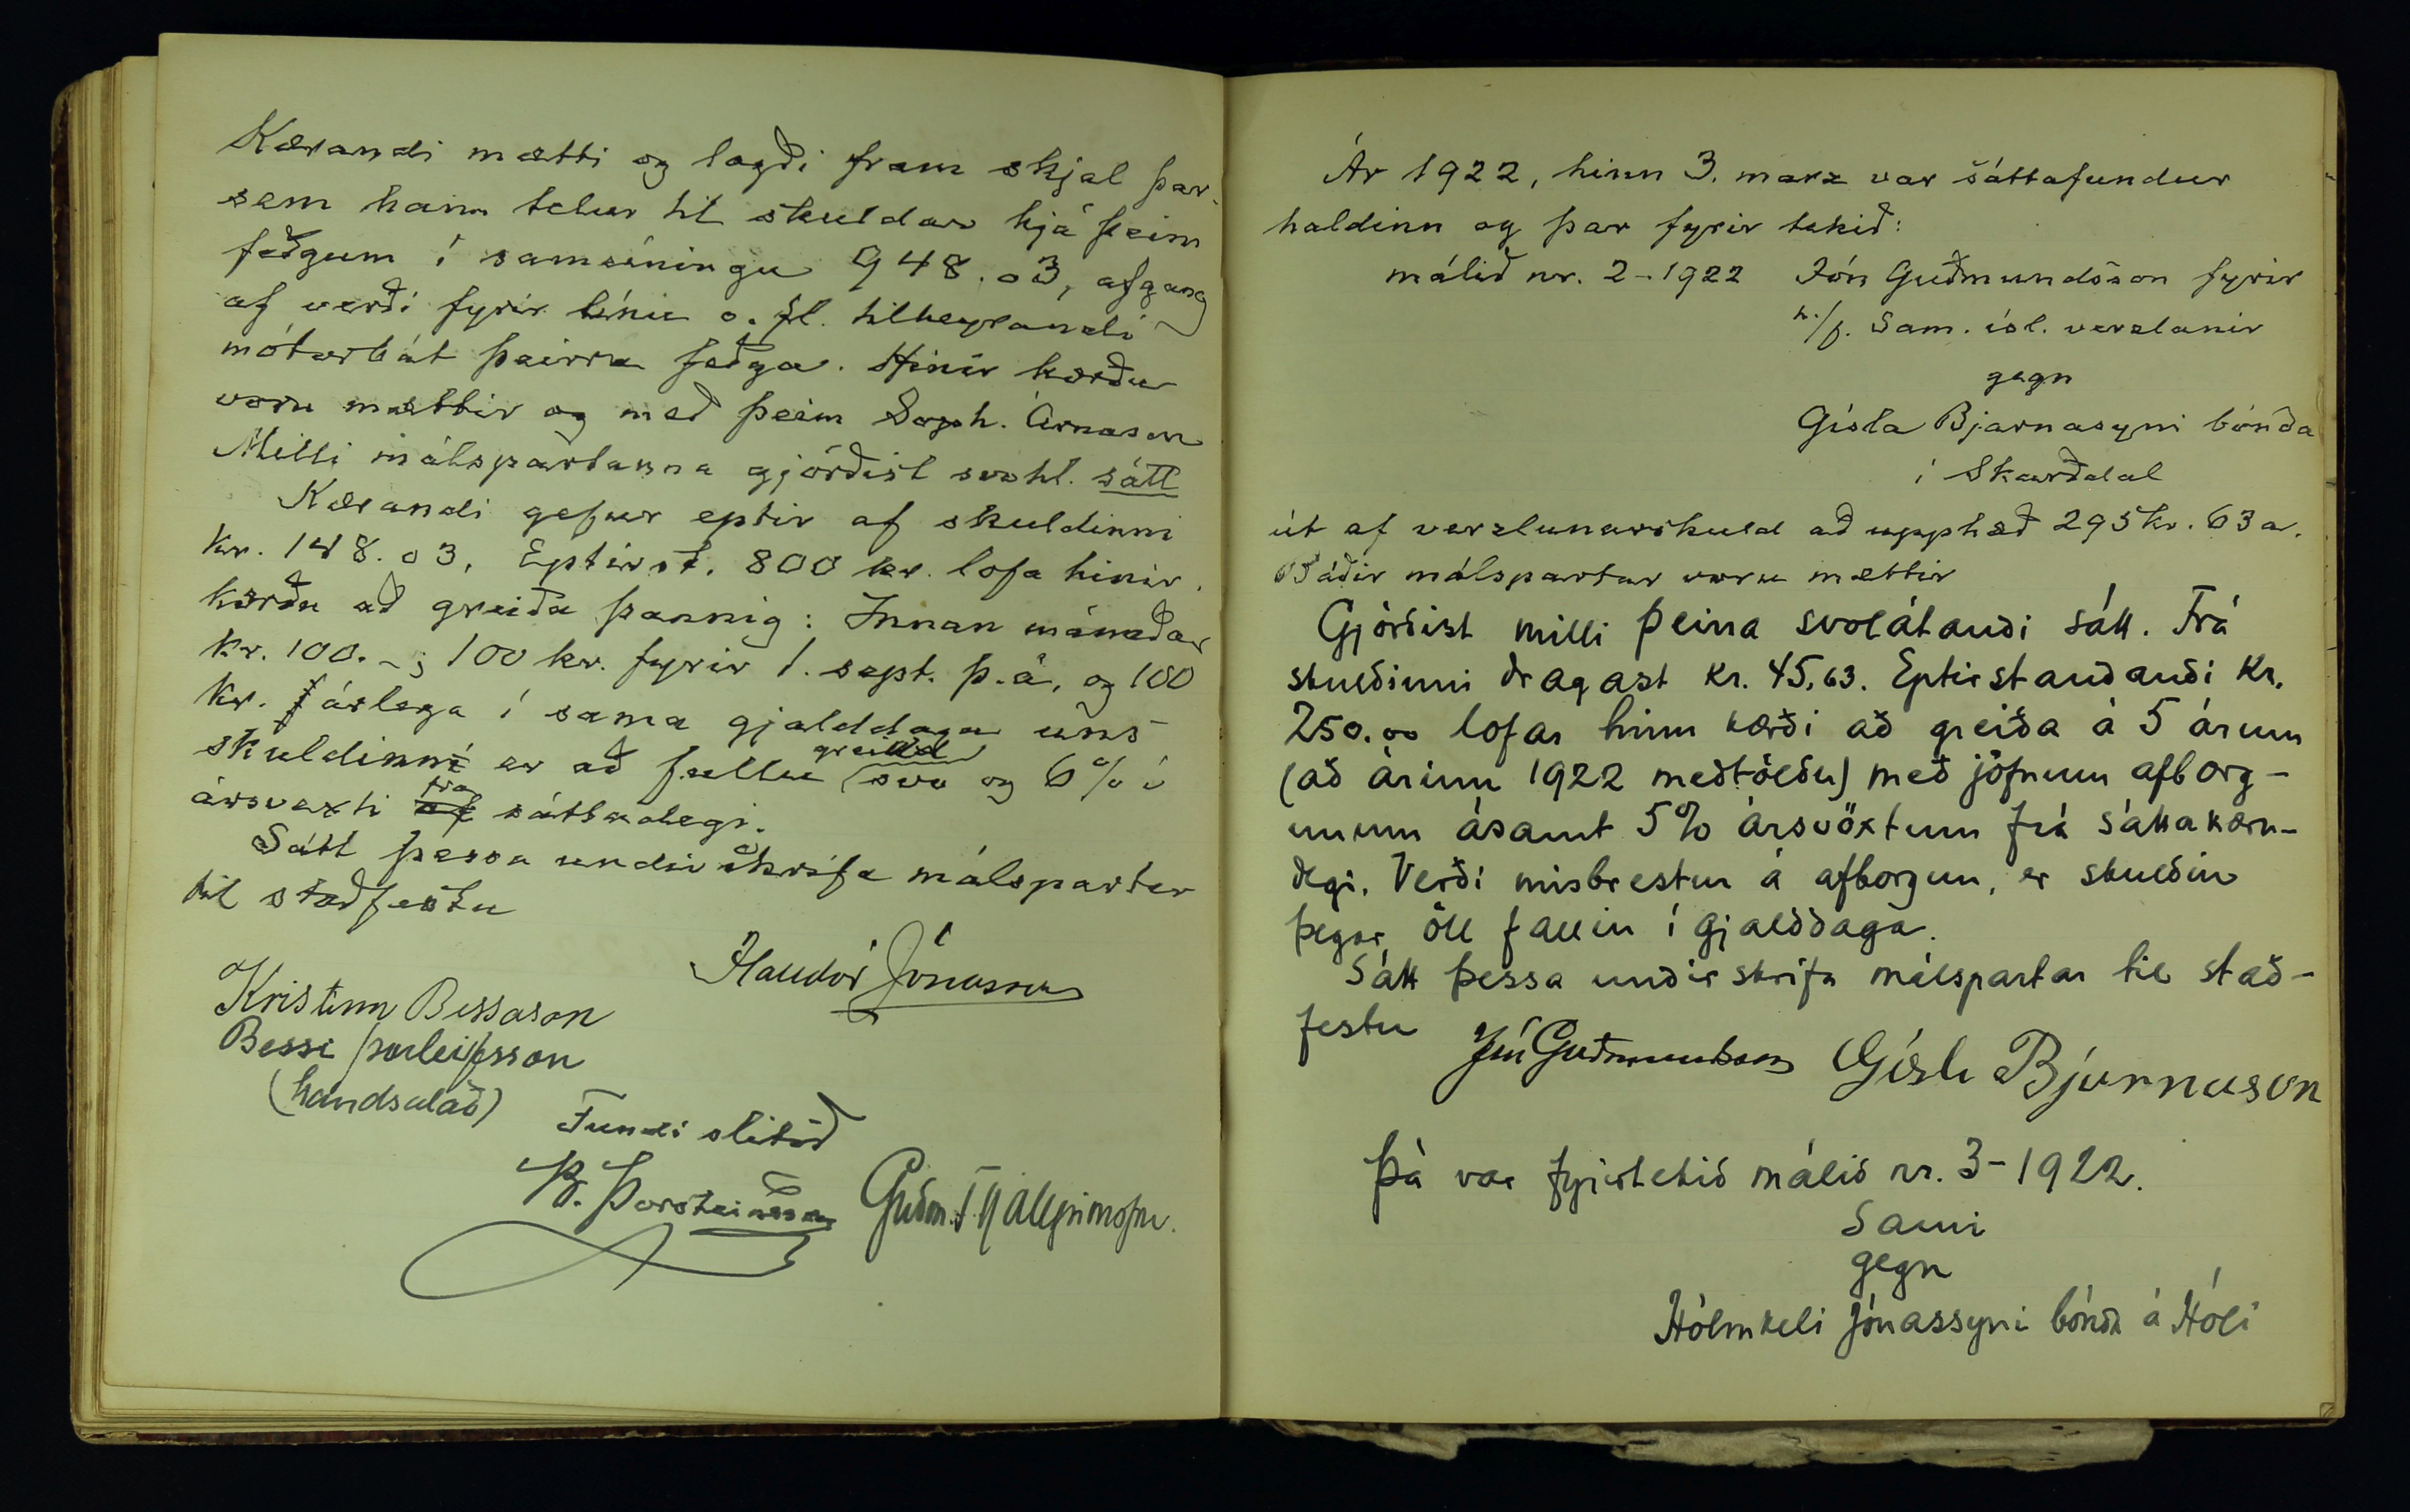 Kærandi mætti og lagði fram skjal þar
sem hann telur til skuldar hjá þeim
feðgum í sameiningu 948.03, afgang
af verði fyrir línu o. fl. tilheyrandi
mótorbát þeirra feðga. Hinir kærðu
voru mættir og með þeim Soph. Árnason
Milli málspartanna gjörðist svohl. sátt
Kærandi gefur eptir af skuldinni
kr. 148.03, Eptirst. 800 kr. lofa hinir
kærðu að greiða þannig: Innan mánaðar
kr. 100.-; 100 kr. fyrir 1. sept. þ.á, og 100
kr. árlega í sama gjalddaga uns
skuldinni er að fullu greidd svo og 6% í
ársvexti frá sáttadegi.
Sátt þessa undirskrifa málspartar
til staðfestu
Halldór Jónasson
Kristinn Bessason
Bessi Þorleifsson
(handsalað)
Fundi slitið
B. Þorsteinsson Guðm. T Hallgrímsson.
Ár 1922, hinn 3. marz var sáttafundur
haldinn og þar fyrir tekið:
málið nr. 2-1922 Jón Guðmundsson fyrir
h./f. Sam. ísl. verzlanir
gegn
Gísla Bjarnasyni bónda
í Skarðdal
út af verzlunarskuld að upphæð 295 kr. 63 a.
Báðir málspartar voru mættir
Gjörðist milli þeirra svolátandi sátt. Frá
skuldinni dragast kr. 45,63. Eptirstandandi kr.
250.00 lofar hinn kærði að greiða á 5 árum
(að árinu 1922 meðtöldu) með jöfnum afborg-
unum ásamt 5% ársvöxtum frá sáttakæru-
degi. Verði misbrestur á afborgun, er skuldin
þegar öll fallin í gjalddaga.
Sátt þessa undirskrifa málspartar til stað-
festu Jón Guðmundsson Gísli Bjarnason
Þá var fyrirtekið málið nr. 3-1922.
Sami
gegn
Hólmkeli Jónassyni bónda á Hóli